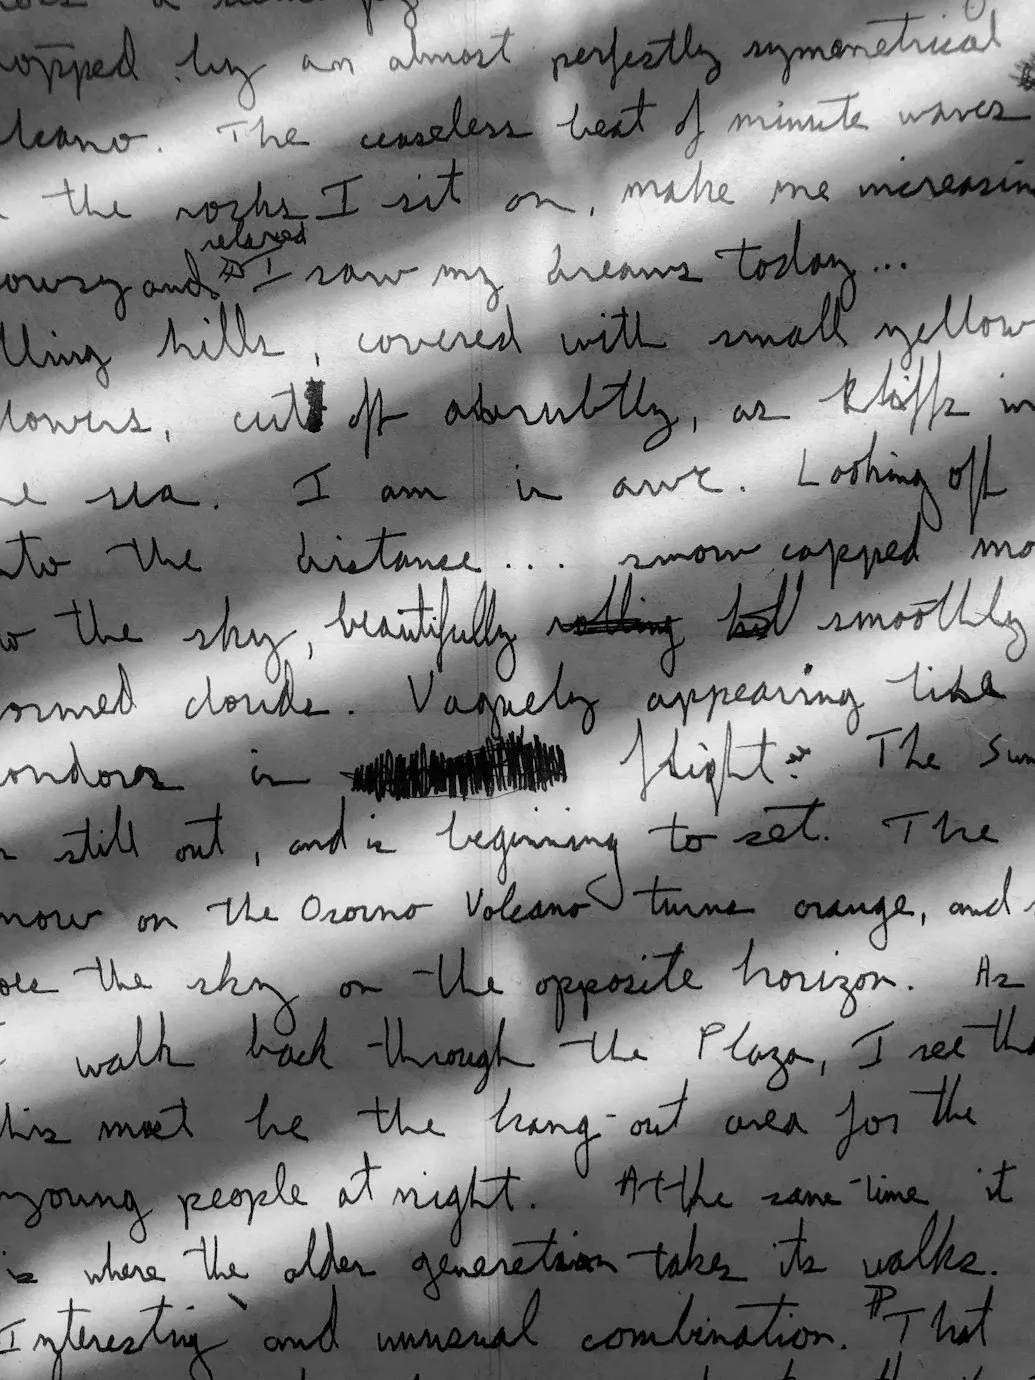 opped by an almost perfectly symmetrical
lcano. The ceaseless beat of minute waves
the rocks I sit on, make me increasin
relaxed
owsy and I saw my dreams today...
lling hills, covered with small yellow
lowers, cut off abrubtly, as kliffs in
he sea. I am in awe. Looking off
nto the distance.... snow capped mo
to the sky, beautifully rolling smoothly
ormed clouds. Vaguely appearing like
ondors in flight. The Sun
still out, and is beginning to set. The
now on the Osorno Volcano turns orange, and
oes the sky on the opposite horizon. As
I walk back through the Plaza, I see tha
this must be the hang-out area for the
young people at night. At the same-time it
is where the older generation takes its walks.
Interesting and unusual combination. That